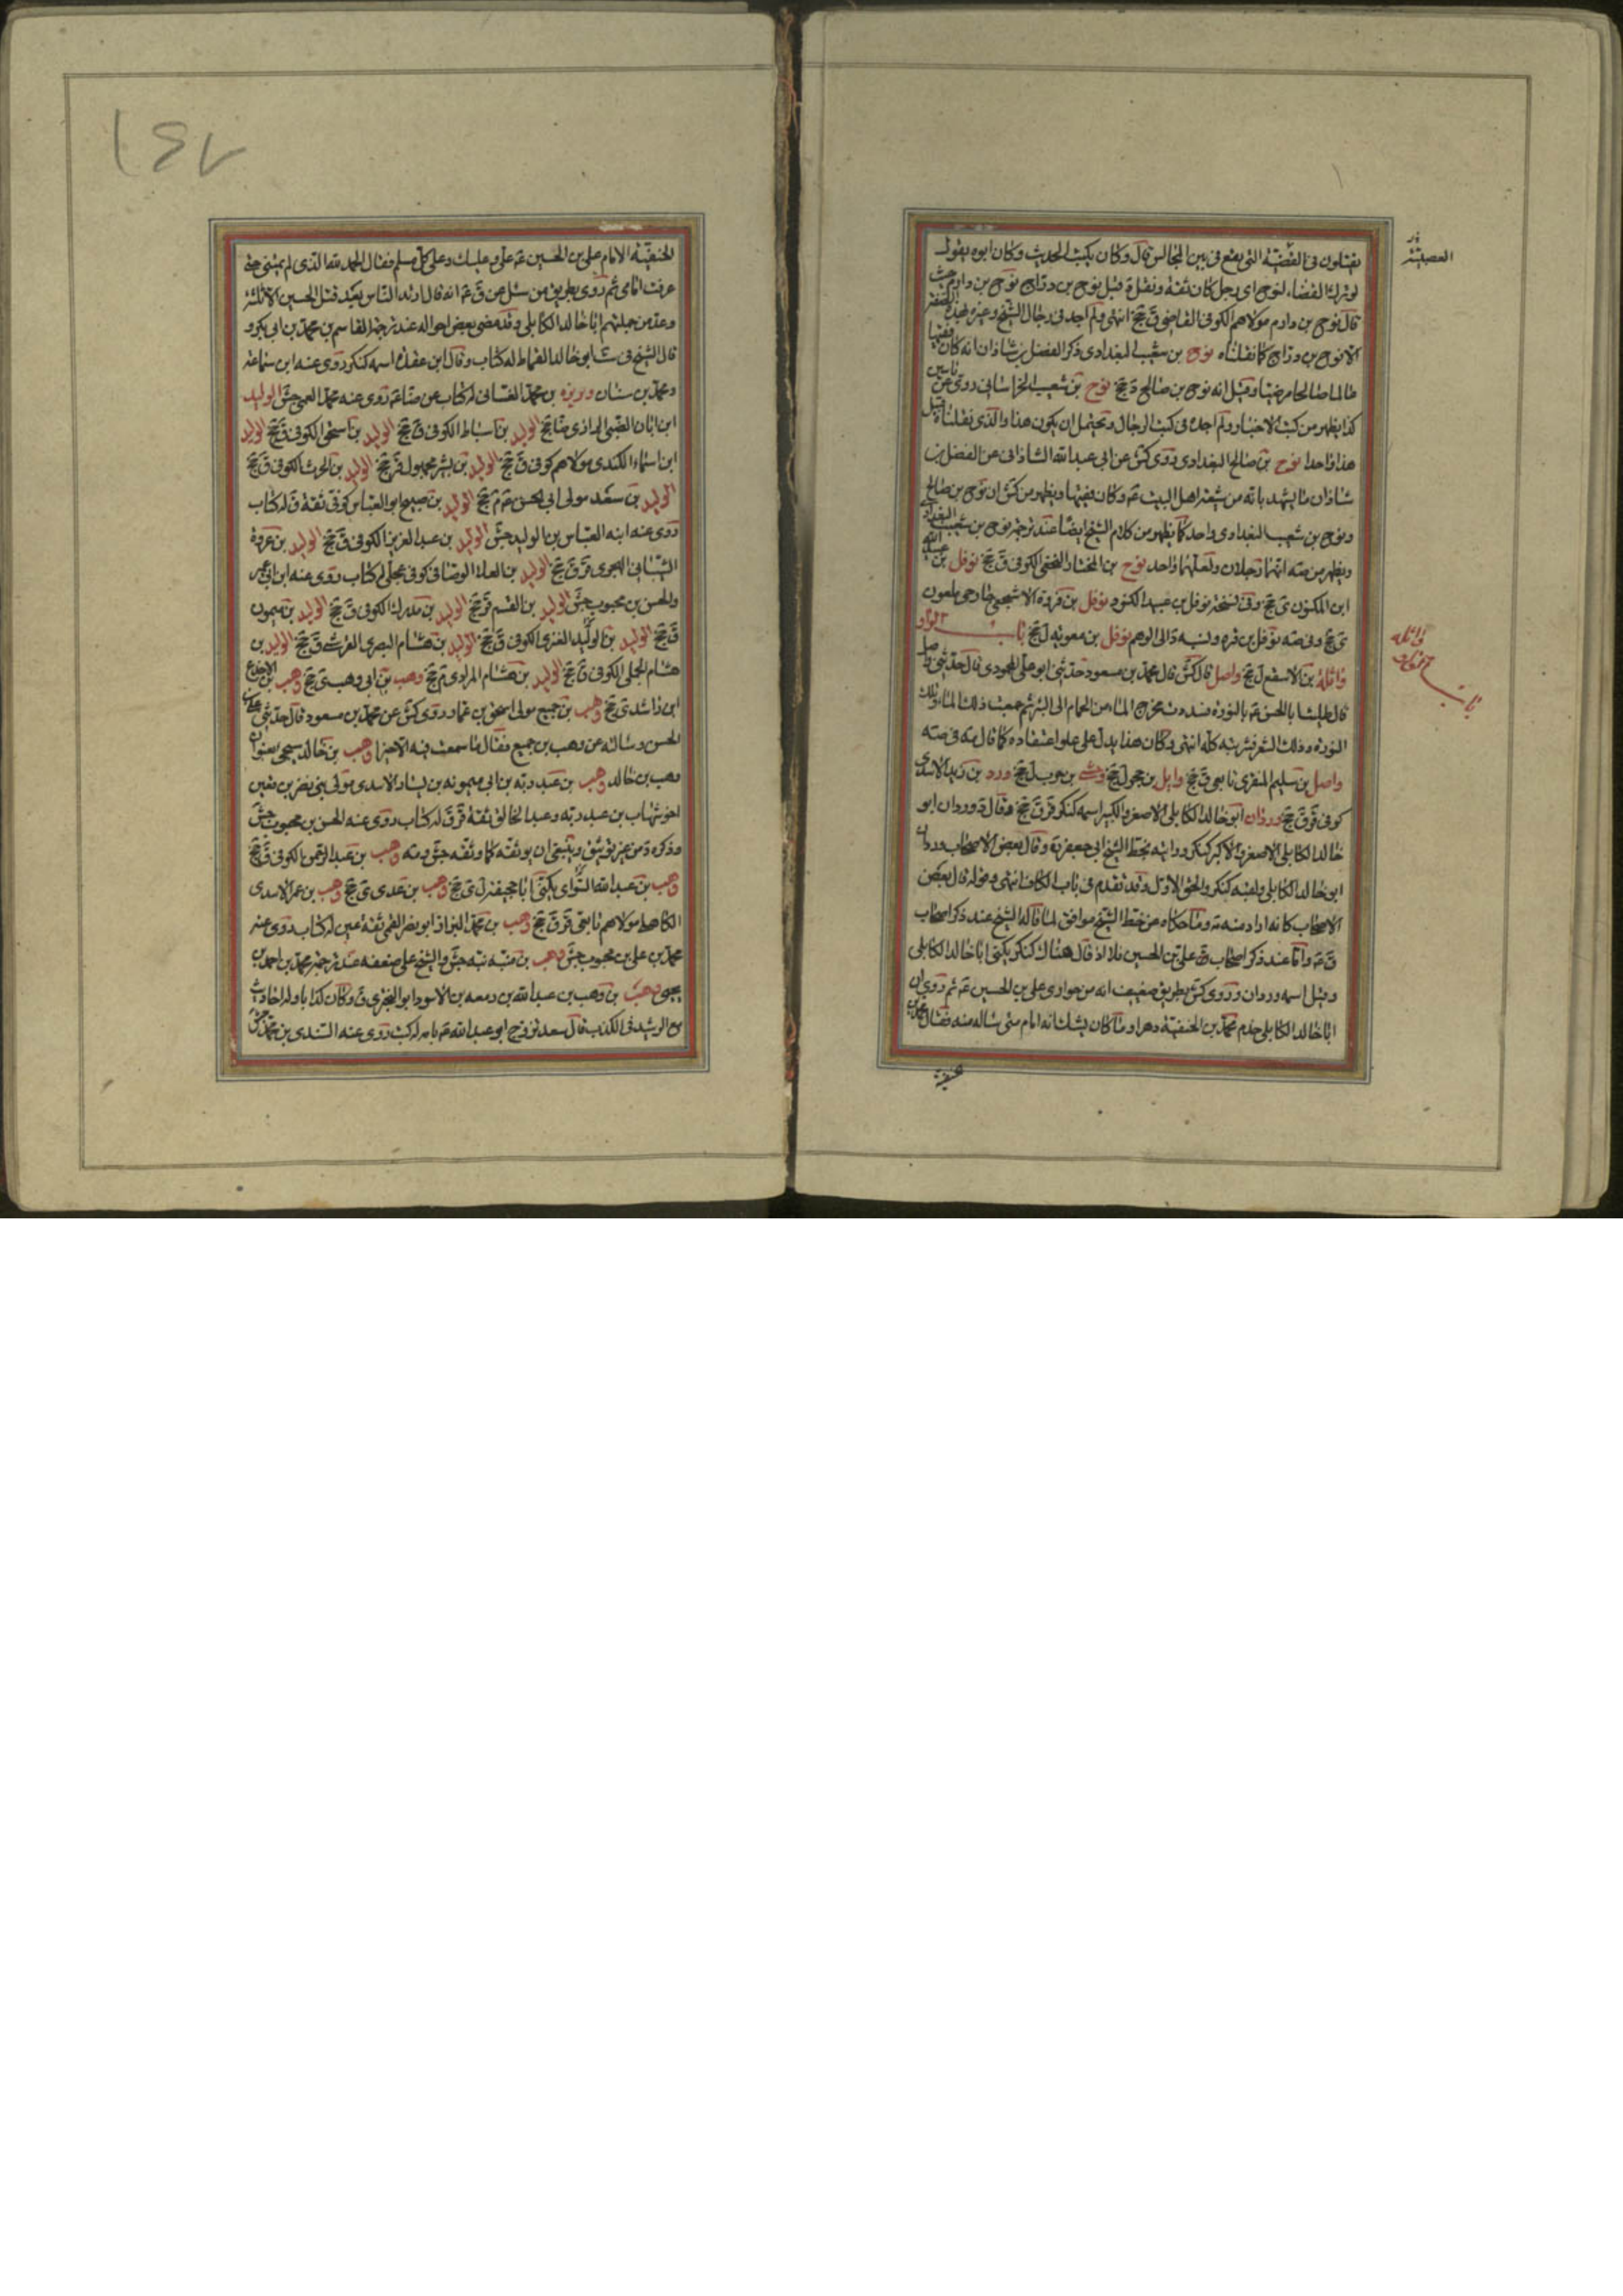 لو ترك القضاء لنوح اى رجل كان ثقة
قال نوح بن دراج مولاهم الكوفى القاضى ق جخ انتهى ولم اجد فى رجال الشيخ وغيره
الا نوح بن دراج كما نقلناه نوح بن شعيب البغدادى ذكر الفضل بن شاذان انه كان فقيها
عالما صالحا مرضيا وقيل انه نوح بن صالح د جخ نوح بن شعيب الخراسانى روى عن
كذا يظهر من كتب الاخبار ولم اجده فى كتب الرجال ويحتمل ان يكون هذا والذى نقلناه قبيل
هذا واحدا نوح بن صالح البغدادى روى كش عن ابى عبد الله الشاذانى عن الفضل بن
شاذان ما يشهد بانه من شيعة اهل البيت عم وكان فقيها ويظهر من كش ان نوح بن صالح البغدادى
ونوح بن شعيب البغدادى واحد كما يظهر من كلام الشيخ ايضا عند ترجمة نوح بن شعيب
ويظهر من صه انهما رجلان ولعلهما واحد نوح بن المختار النخعى الكوفى ق جخ نوفل بن عبد الله
ابن المكنون ى جخ وفى نسخة نوفل بن عبيد الكنود نوفل بن فروة الاشجعى خارجى ملعون
ى جخ وفى صه نوفل بن قره ونسبه د الى الوهم نوفل بن معوية ل جخ باب الواو
واثلة بن الاسقع ل جخ واصل قال كش قال محمد بن مسعود حدثنى ابو على المحمودى قال حدثنى واصل
قال طليت ابا الحسن عم بالنورة فسددت مخرج الماء من الحمام الى البئر ثم جمعت ذلك الماء وتلك
النورة وذلك الشعر فشربته كله انتهى وكان هذا يدل على علو اعتقاده كما قال مه فى صه
واصل بن سليم المنقرى تابعى ق جخ وايل بن حجر ل جخ وحشى بن حرب ل جخ ورد بن زيد الاسدى
كوفى قر ق جخ وردان ابو خالد الكابلى الاصغر والكبير اسمه كنكر قر ق جخ فقال د وردان ابو
خالد الكابلى الاصغر والاكبر كنكر ورايته بخط الشيخ ابى جعفر ية وقال بعض الاصحاب وردان
ابو خالد الكابلى ولقبه كنكر والحق الاول وقد تقدم فى باب الكاف انتهى وقوله قال بعض
الاصحاب كانه اراد منه مه وما حكاه من خط الشيخ موافق لما قاله الشيخ عند ذكر اصحاب
ق عم واما عند ذكر اصحاب على بن الحسين فلا اذ قال هناك كنكر يكنى ابا خالد الكابلى
وقيل اسمه وردان وروى كش بطريق ضعيف انه من حوارى على بن الحسين عم ثم روى ان
ابا خالد الكابلى خدم محمد بن الحنفية دهرا وما كان يشك انه امام حتى ساله منه فقال محمد بن
واثله
باب
الحنفية الامام على بن الحسين عم على وعليك وعلى كل مسلم فقال الحمد لله الذى لم يمتنى حتى
عرفت امامى ثم روى بطريق من سئل عن ق عم انه قال ارتد الناس بعد قتل الحسين الا ثلثة
وعد من جملتهم ابا خالد الكابلى وقد مضى بعض احواله عند ترجمة القاسم بن محمد بن ابى بكر و
قال الشيخ فى ست ابو خالد القماط له كتاب وقال ابن عقدة اسمه كنكر روى عنه ابن سماعة
ومحمد بن سنان وريزه بن محمد الغسانى له كتاب عن ضا عم روى عنه محمد العمى جش الوليد
ابن ابان الضبى الرازى ضا جخ الوليد بن اسباط الكوفى ق جخ الوليد بن اسحق الكوفى ق جخ الوليد
ابن اسماء الكندى مولاهم كوفى ق جخ الوليد بن بشر مجهول قر جخ الوليد بن الحرث الكوفى ق جخ
الوليد بن سعد مولى ابى الحسن عم م جخ الوليد بن صبيح ابو العباس كوفى ثقة ق له كتاب
روى عنه ابنه العباس بن الوليد جش الوليد بن عبد العزيز الكوفى ق جخ الوليد بن عروة
الشيبانى الهجرى قر ق جخ الوليد بن العلاء الوصافى كوفى عجلى له كتاب روى عنه ابن ابى عمير
والحسن بن محبوب جش الوليد بن القسم قر جخ الوليد بن مدرك الكوفى ق جخ الوليد بن ميمون
ق جخ الوليد بن الوليد الغنزى الكوفى ق جخ الوليد بن هشام البصرى القرشى ق جخ الوليد بن
هشام الجبلى الكوفى ق جخ الوليد بن هشام المرادى م جخ وهب بن ابى وهب ى جخ وهب بن الاجدع
ابن راشد ى جخ وهب بن جميع مولى اسحق بن عمار روى كش عن محمد بن مسعود قال حدثنى على بن
الحسن وسالته عن وهب بن جميع فقال ما سمعت فيه الا خيرا وهب بن خالد سيجئ بعنوان
وهب بن خالد وهب بن عبد ربه بن ابى ميمونه بن يسار الاسدى مولى بنى نصر بن قعين
اخو شهاب بن عبد ربه وعبد الخالق ثقة قر ق له كتاب روى عنه الحسن بن محبوب جش
وذكره د من غير توثيق وينبغى ان يوثقه كما وثقه جش ومه وهب بن عبد الرحمن الكوفى ق جخ
وهب بن عبد الله السوائى يكنى ابا جحيفة ل ى جخ وهب بن عدى ى جخ وهب بن عمر الاسدى
الكاهلى مولاهم تابعى قر ق جخ وهب بن محمد البزاز ابو نصر القمى ثقة عين له كتاب روى عنه
محمد بن على بن محبوب جش وهب بن منبه نبه جش والشيخ على ضعفه عند ترجمة محمد بن احمد بن
يحيى وهب بن وهب بن عبد الله بن زمعه بن الاسود ابو البخترى ق وكان كذابا وله احاديث
مع الرشيد فى الكذب قال سعد تزوج ابو عبد الله عم بامه له كتب روى عنه السندى بن محمد جش